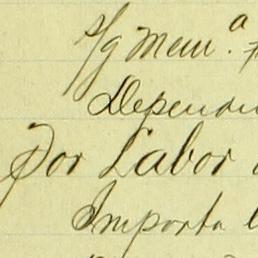 s/g Mem.a
Dependi
Por Labor
Importa l